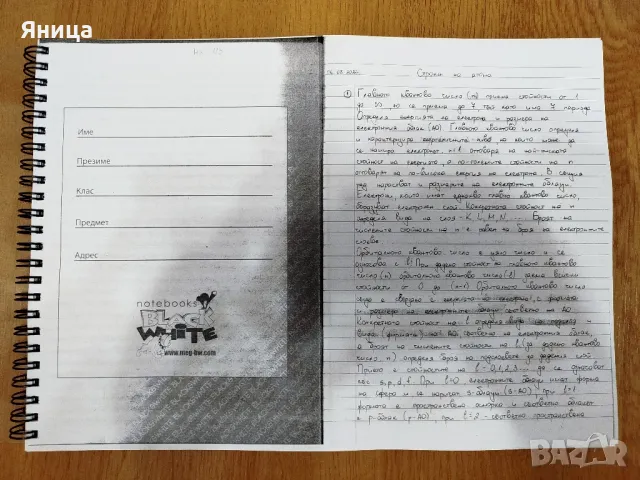 Яница
Име
Презиме
Клас
Предмет
Адрес
notebooks
BLACK
WHITE
www.meg-bw.com
Строеж на атома
① Главното квантово число (n) приема стойности от 1
до ∞, но се приема до 7, тъй като има 7 периода
Определя енергията на електрона и размера на
електронния облак (АО). Главното квантово число определя
и характеризира енергетичните нива, на които може да
се намира електронът. n=1 отговаря на най-ниската
стойност на енергията, а по-големите стойности на n
отговарят на по-висока енергия на електрона. В същия
ред нарастват и размерите на електронните облаци.
Електрони, които имат еднакво главно квантово число,
образуват електронен слой. Конкретната стойност на n
определя вида на слоя - K, L, M, N... Броят на
числените стойности на n е равен на броя на електронните
слоеве.
Орбиталното квантово число е цяло число и се
означава с l. При дадена стойност на главното квантово
число (n) орбиталното квантово число (l) заема всички
стойности от 0 до (n-1). Орбиталното квантово число
също е свързано с енергията на електрона, с формата
и размера на електронните облаци съответно на АО.
Конкретната стойност на l определя вида на подслоя и
вида (формата) съответно на електронния облак,
а броят на числените стойности на l (за дадено квантово
число n) определя броя на подслоевете за дадения слой
Прието е стойностите на l = 0,1,2,3... да се означават
със s, p, d, f. При l=0 електронните облаци имат форма
на сфера и се наричат s-облаци (s-АО), при l=1
формата е пространствена осморка и съответно облакът
е p-облак (p-АО), при l=2 - съответно пространствена
BAZAR